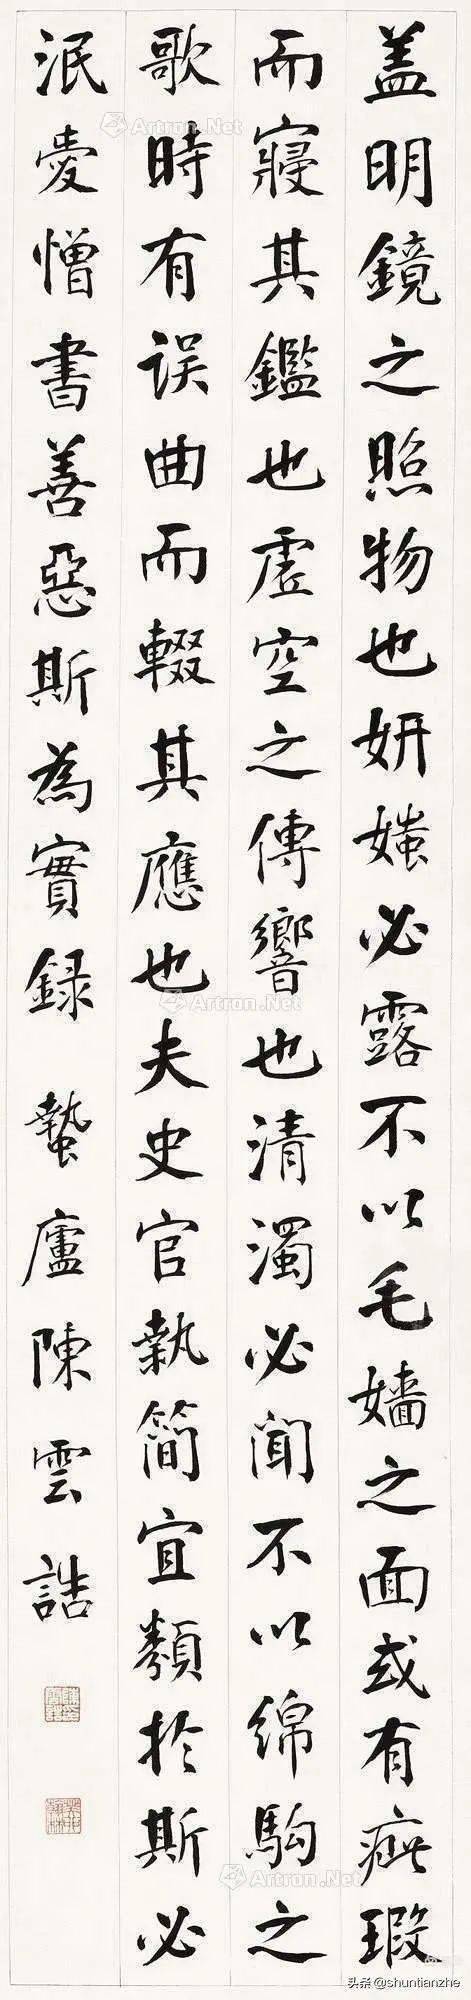 盖明鏡之照物也妍媸必露不以毛嬙之面或有疵瑕
而寢其鑑也虛空之傳響也清濁必聞不以綿駒之
歌時有误曲而輟其應也夫史官執簡宜類於斯必
泯愛憎書善惡斯為實録 蟄廬陳雲誥
Artron.Net
Artron.Net
Artron.Net
头条@shuntianzhe